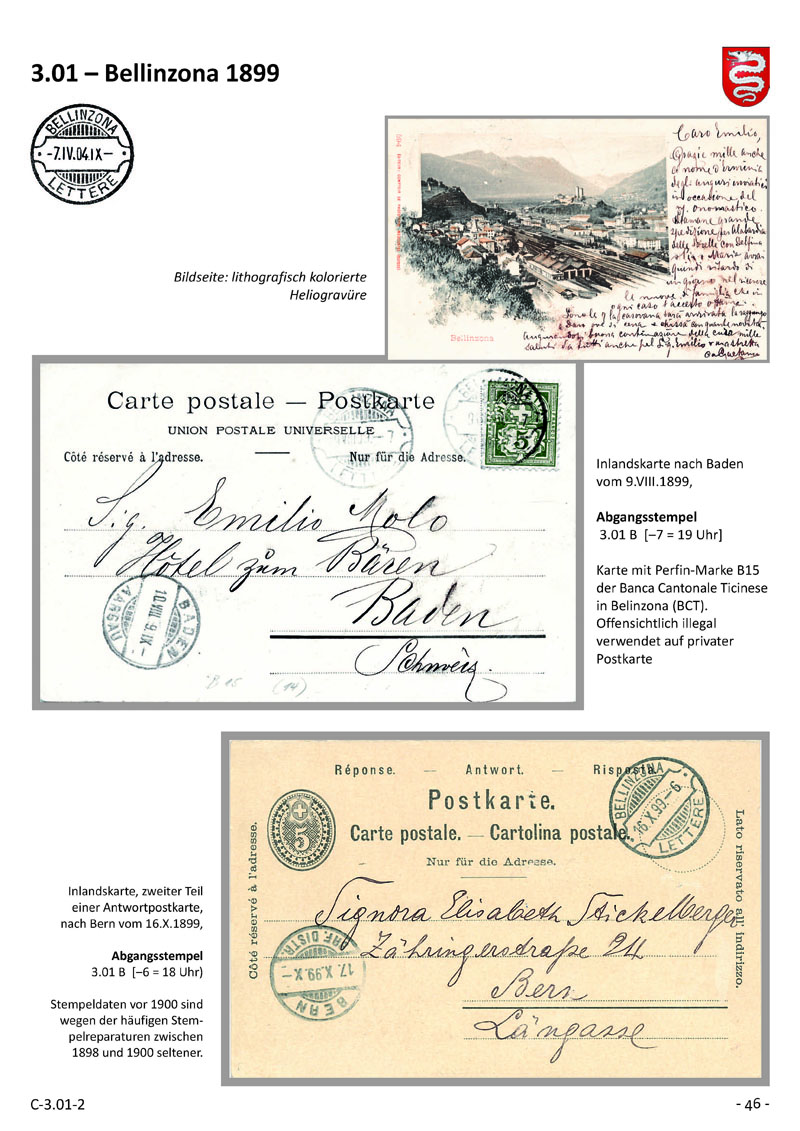 3.01 – Bellinzona 1899
BELLINZONA
-7.IV.04.IX-
LETTERE
Bildseite: lithografisch kolorierte
Heliogravüre
Caro Emilio,
Grazie mille anche
a nome d'Erminia
degli auguri inviatici
in occasione del
onomastico.
grande
spedizione
delle
Maria
quindi ritardo di
le nuove di famiglia che in
ogni caso t'accetto
arrivata
buona continuazione della cura mille
saluti da tutti anche pel Sig. Emilio
Bellinzona
Carte postale — Postkarte
UNION POSTALE UNIVERSELLE
Côté réservé à l'adresse.
Nur für die Adresse.
5
Sig. Emilio Molo
Hôtel zum Bären
Baden
Schweiz
BADEN
10.VIII.9.IX-
AARGAU
B 15 (14)
Inlandskarte nach Baden
vom 9.VIII.1899,
Abgangsstempel
3.01 B [–7 = 19 Uhr]
Karte mit Perfin-Marke B15
der Banca Cantonale Ticinese
in Belinzona (BCT).
Offensichtlich illegal
verwendet auf privater
Postkarte
Réponse. — Antwort. — Risposta.
Postkarte.
Carte postale. — Cartolina postale.
Nur für die Adresse.
5
Côté réservé à l'adresse.
Lato riservato all' indirizzo.
BELLINZONA
16.X.99.-6.
LETTERE
Signora Elisabeth Stickelberger
Zähringerstraße 24
Bern
Längasse
BERN
17.X.99.X-
BRF. DISTR.
Inlandskarte, zweiter Teil
einer Antwortpostkarte,
nach Bern vom 16.X.1899,
Abgangsstempel
3.01 B [–6 = 18 Uhr)
Stempeldaten vor 1900 sind
wegen der häufigen Stem-
pelreparaturen zwischen
1898 und 1900 seltener.
C-3.01-2
- 46 -